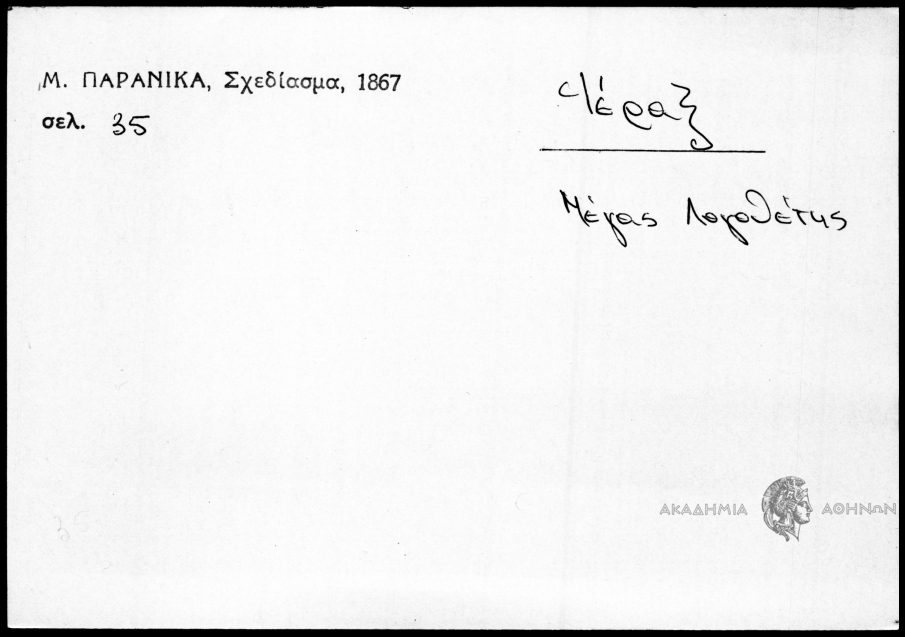 Μ. ΠΑΡΑΝΙΚΑ, Σχεδίασμα, 1867
σελ. 35
Ιέραξ
Μέγας Λογοθέτης
35
ΑΚΑΔΗΜΙΑ ΑΘΗΝΩΝ